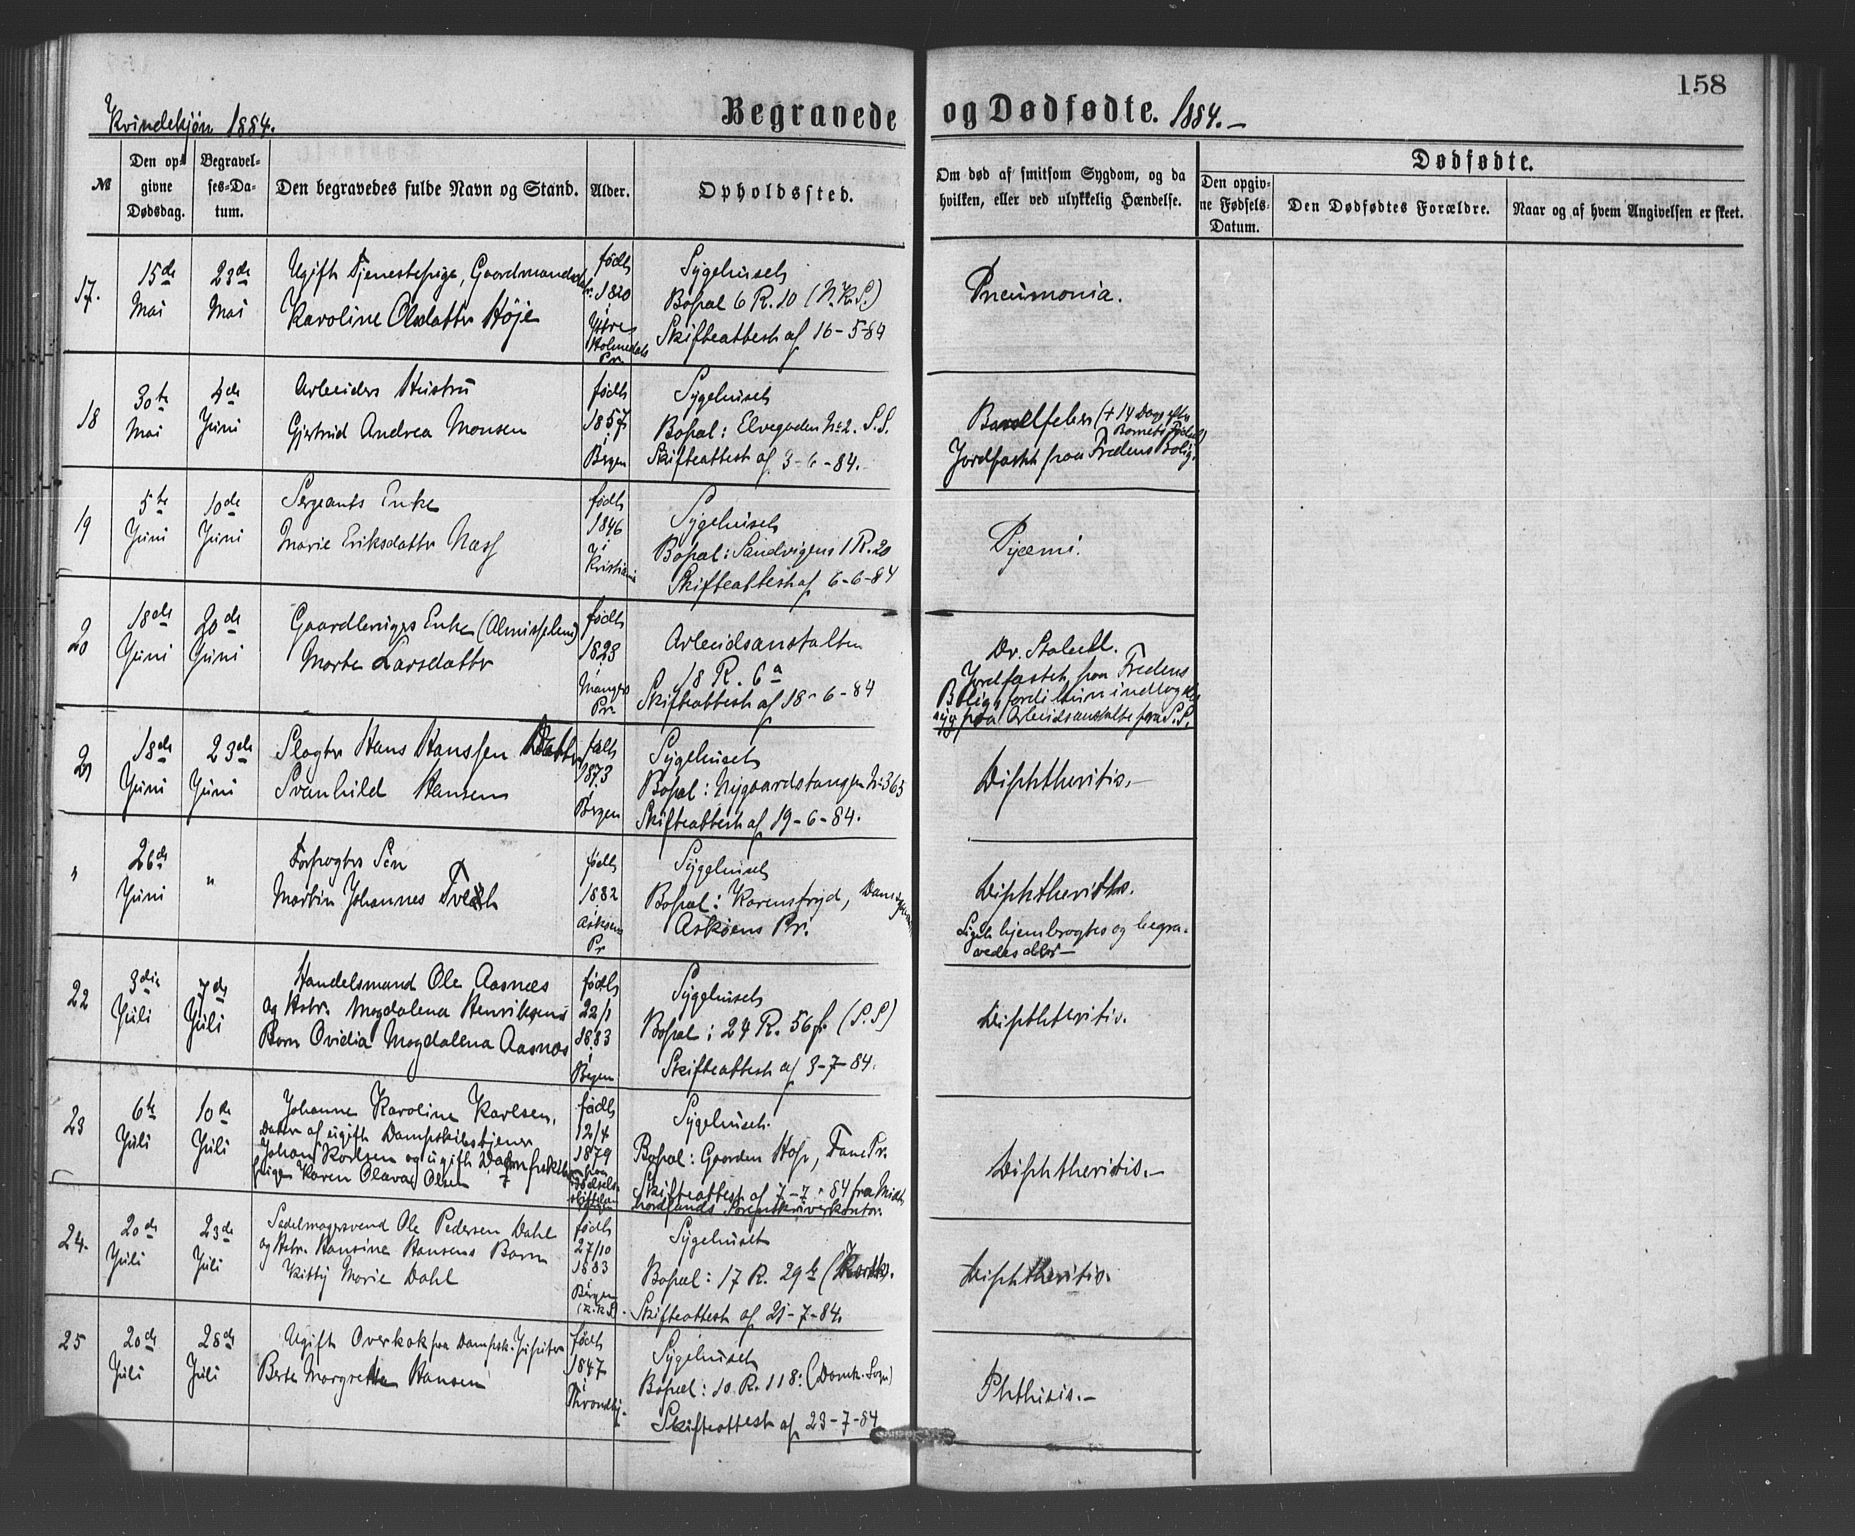 158
Kvindekjøn 1884.
Begravede og Dødfødte. 1884.-
№
Den opgivne Dødsdag.
Begravelses-Datum.
Den begravedes fulde Navn og Stand.
Alder.
Opholdssted.
Om død af smitsom Sygdom, og da hvilken, eller ved ulykkelig Hændelse.
Dødfødte.
Den opgivne Fødsels-Datum.
Den Dødfødtes Forældre.
Naar og af hvem Angivelsen er skeet.
17.
15de Mai
23de Mai
Ugift Tjenestepige, Gaardmandsdatr.
Karoline Olsdatter Høje
født 1820 i Ytre Holmedals Pr.
Sygehuset
Bopæl 6 R. 10 (N.K.S.)
Skifteattest af 16-5-84
Pneumonia.
18
30te Mai
4de Juni
Arbeiders Hustru
Gjertrud Andrea Monsen
født 1857 i Bergen
Sygehuset
Bopæl: Elvegaden № 2. S.S.
Skifteattest af 3-6-84.
Barselfeber (+ 14 Dage efter Barnets Fødsel)
Jordfæstet fra Fredens Bolig.
19
5te Juni
10de Juni
Sergeants Enke
Marie Eriksdatter Næss
født 1846 i Kristiania
Sygehuset
Bopæl: Sandvigens 1 R. 20
Skifteattest af 6-6-84
Pyæmi.
20
18de Juni
20de Juni
Gaardbrugers Enke (Almisselem)
Marte Larsdatter
født 1823 i Mangers Pr.
Arbeidsanstalten
18 R. 6a
Skifteattest af 18-6-84
Jordfæstet fra Fredens
Bolig, fordi hun indlagdes
syg paa Arbeidsanstalten fra S.S.
21
18de Juni
23de Juni
Slagter Hans Hanssen Datter
Svanhild Hansen
født 1873 i Bergen
Sygehuset
Bopæl: Nygaardstangen № 365
Skifteattest af 19-6-84.
Diphtheritis.-
"
26de Juni
"
Forpagters Søn
Martin Johannes Tveit
født 1882 i Askøens Pr
Sygehuset
Bopæl: Karensfryd,
Askøens Pr.
Diphtheritis.
Liget hjembragtes og begravedes der-
22
3die Juli
7de Juli
Handelsmand Ole Aasnæs
og Hstr. Magdalena Henriksens
Barn Ovidia Magdalena Aasnæs
født 22/1 1883 i Bergen
Sygehuset
Bopæl: 24 R. 56f. (S.S)
Skifteattest af 3-7-84.
Diphtheritis.
23
6te Juli
10de Juli
Johanne Karoline Karlsen,
Datter af ugift Dampskibstjener
Johan Karlsen og ugift
pige Karen Olava Olsen
født 12/4 1879
Sygehuset.
Bopæl: Gaarden Hop, Fane Pr.
Skifteattest af 7-7-84 fra Midt-
hordlands Sorenskriverkontor.
Diphtheritis.-
24.
20de Juli
23de Juli
Sadelmagersvend Ole Pedersen Dahl
og Hstr. Hansine Hansens Barn
Kitty Marie Dahl
født 27/10 1883 i Bergen
Sygehuset
Bopæl: 17 R. 29b (Korsk).
Skifteattest af 21-7-84.
Diphtheritis.
25
20de Juli
28de Juli
Ugift Overkok paa Dampsk. Jupiter
Berte Margrethe Hansen
født 1847 i Throndhj.
Sygehuset
Bopæl: 10 R. 118. (Domk. Sogn)
Skifteattest af 23-7-84
Phthisis.-